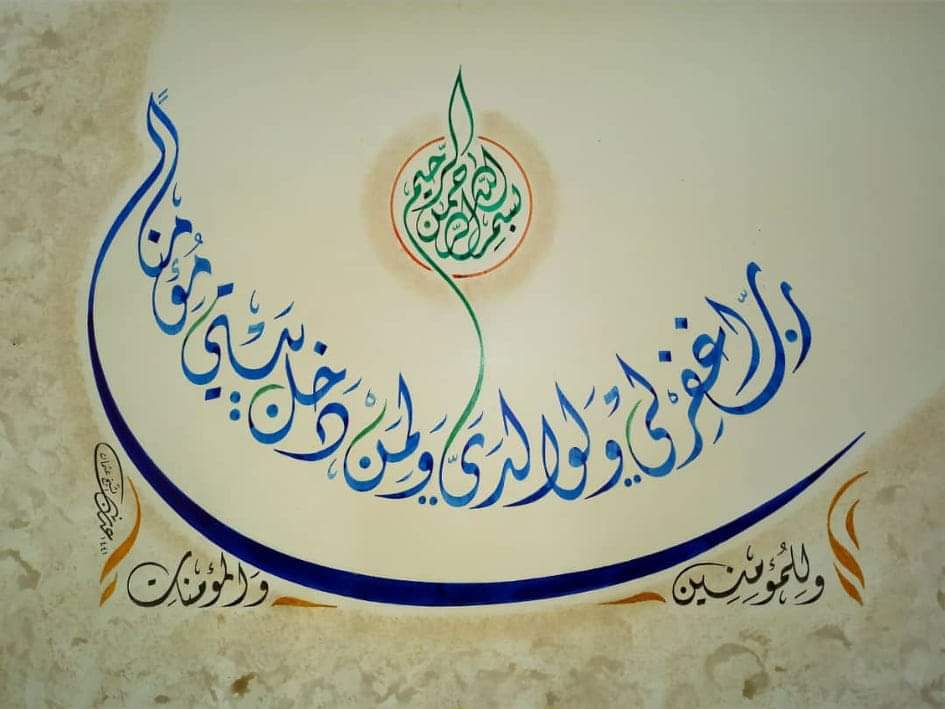 بسم الله الرحمن الرحيم
رب اغفر لي ولوالدي ولمن دخل بيتي مؤمنًا
وللمؤمنين والمؤمنات
١٤٤١